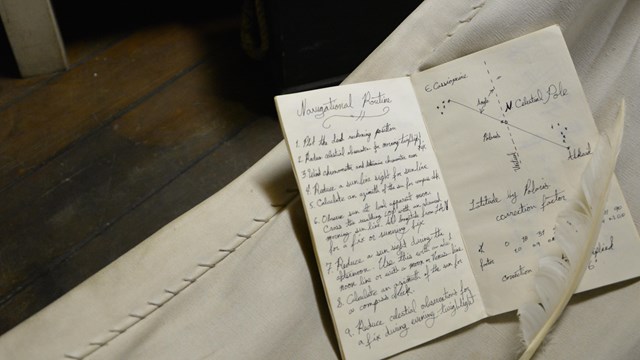 Navigational Routine
1. Plot the dead reckoning position
2. Reduce celestial observation for morning twilight fix
3. Wind chronometer and determine chronometer error
4. Reduce a sun line sight for sun line
5. Calculate an azimuth of the sun for compass
6. Observe sun at local apparent noon
Cross the resulting with an advanced
morning sun line
for a fix or running fix
7. Reduce a sun sight during the
afternoon. Use this with an
noon line or with a moon or Venus line
8. Calculate an azimuth of the sun for
a compass check
9. Reduce celestial observations for
a fix during evening twilight
E Cassiopeia
Angle
N Celestial Pole
Polaris
Alkaid
Latitude by Polaris
correction factor
factor
Correction